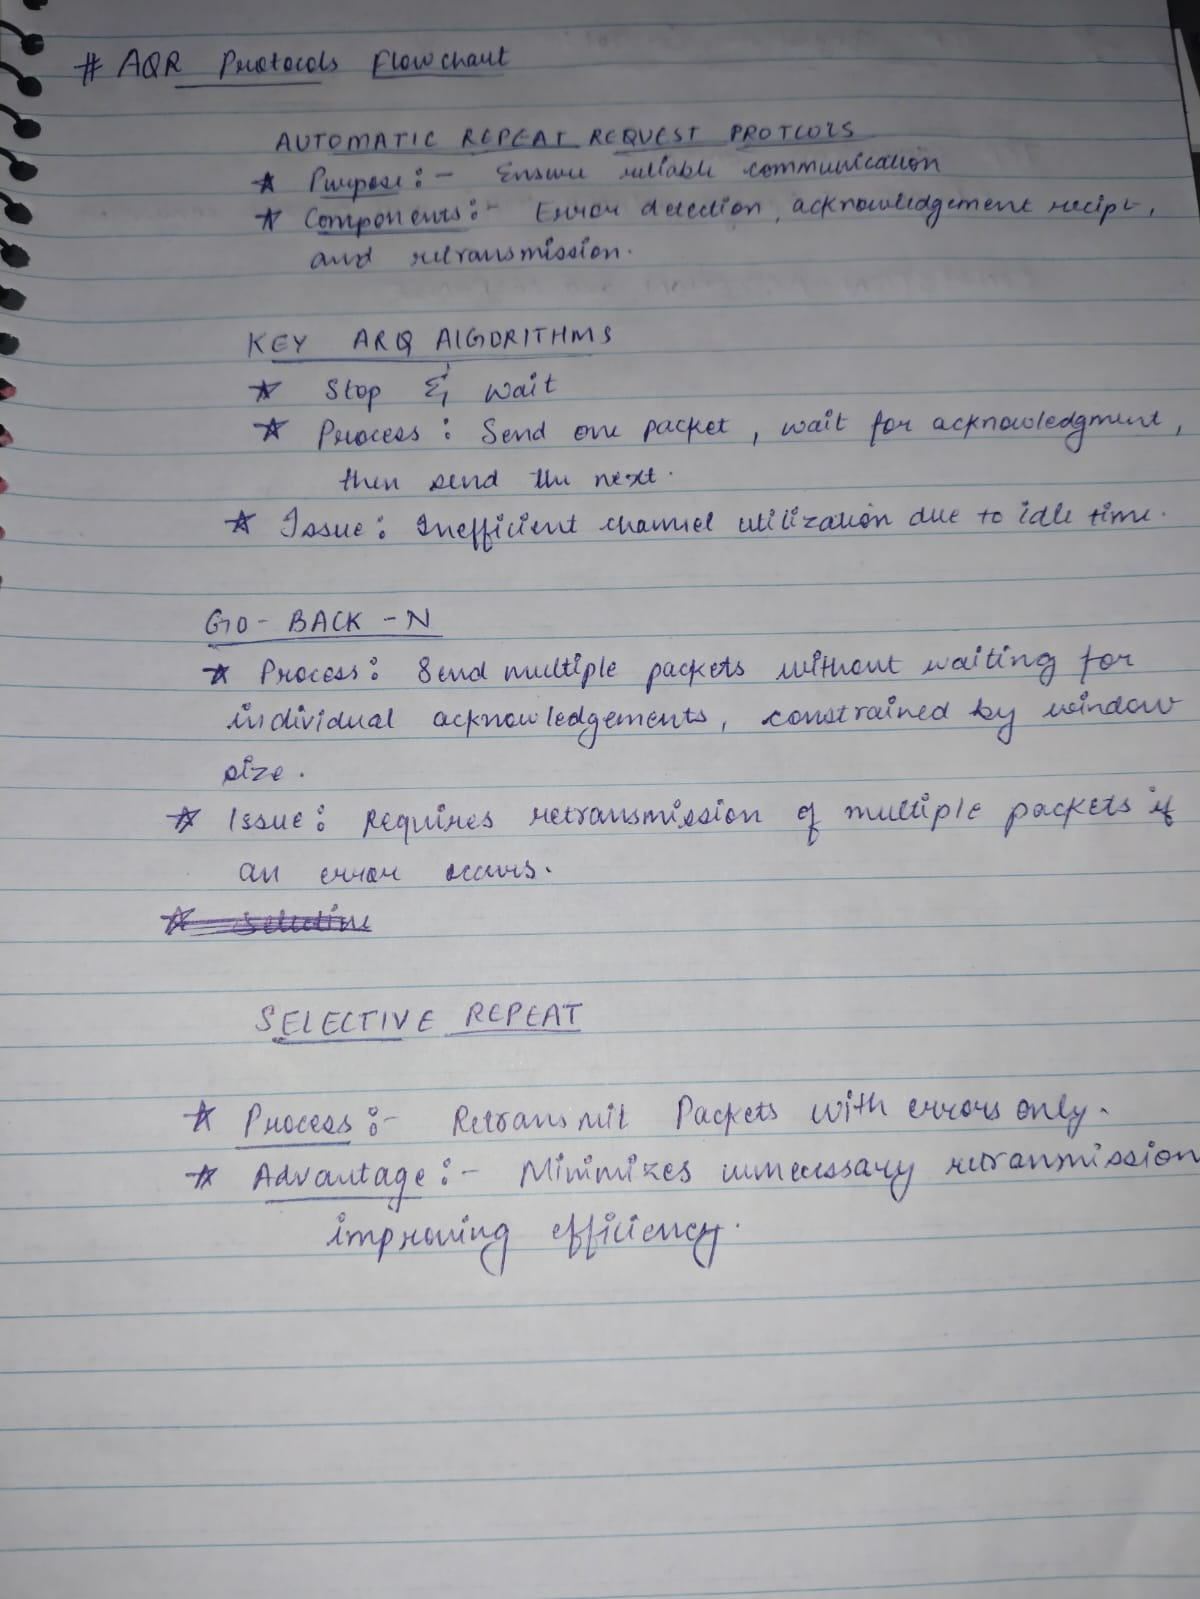 # AQR Protocols Flowchart
AUTOMATIC REPEAT REQUEST PROTCOLS
★ Purpose :- Ensure reliable communication
★ Components :- Error detection, acknowledgement recipt,
and retransmission.
KEY ARQ ALGORITHMS
★ Stop & wait
★ Process : Send one packet, wait for acknowledgment,
then send the next.
★ Issue : Inefficient channel utilization due to idle time.
GO-BACK-N
★ Process : Send multiple packets without waiting for
individual acknowledgements, constrained by window
size.
★ Issue : Requires retransmission of multiple packets if
an error occurs.
★ Selective
SELECTIVE REPEAT
★ Process :- Retransmit Packets with errors only.
★ Advantage :- Minimizes unnecessary retranmission
improving efficiency.